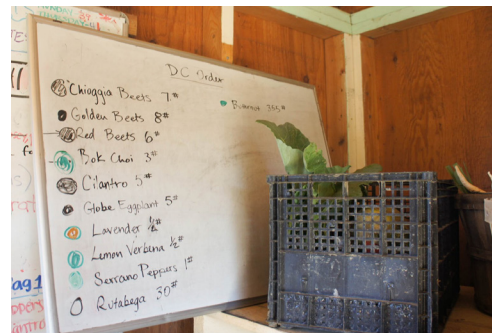 D.C. Order
Chioggia Beets 7#
Golden Beets 8#
Red Beets 6#
Bok Choi 3#
Cilantro 5#
Globe Eggplant 5#
Lavender ½#
Lemon Verbena ½#
Serrano Peppers 1#
Rutabaga 30#
Butternut 355#